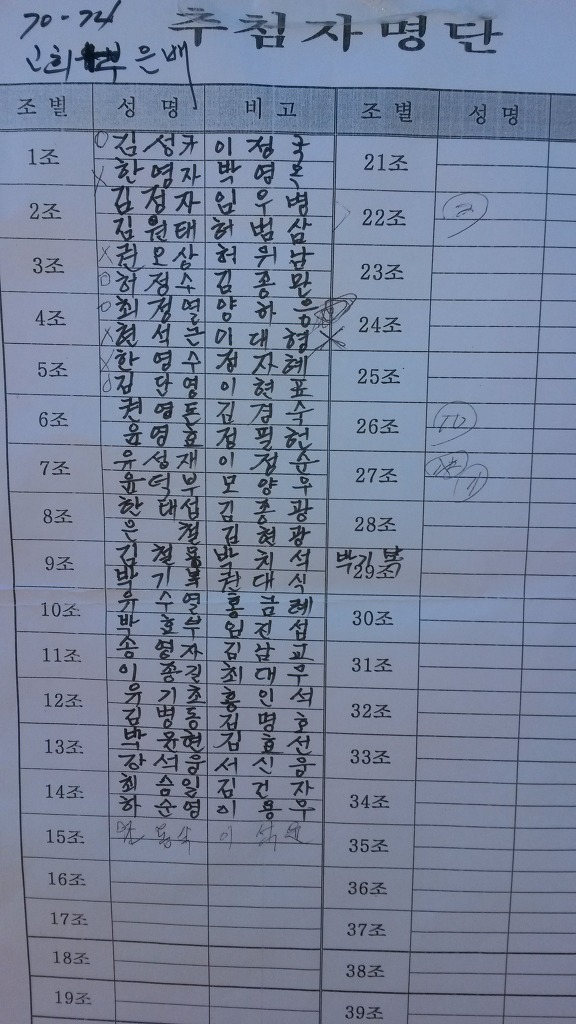 70-74
추첨자명단
고희부 은배
조별 성명 비고 조별 성명
1조 김성규 이정국 21조
한영자 박영목
2조 김정자 임우병 22조 2
김원태 허범삼
3조 권오상 허위남 23조
허정수 김종만
4조 최정열 양하응 24조
현석근 이대형
5조 한영수 정자혜 25조
김단영 이현표
6조 권영돈 김경숙 26조 10
윤영효 정필헌
7조 유성재 이정순 27조 11
윤덕부 모양우
8조 한태섭 김종광 28조
은철 김현광
9조 김철용 박치석 박기복 29조
박기복 권대식
10조 유수열 홍금혜 30조
박호부 임진섭
11조 송영자 김남교 31조
이종진 최대우
12조 유기호 홍인석 32조
김병동 김명호
13조 박윤현 김효선 33조
장석웅 서신웅
14조 최승일 김건자 34조
하순영 이용무
15조 35조
16조 36조
17조 37조
18조 38조
19조 39조